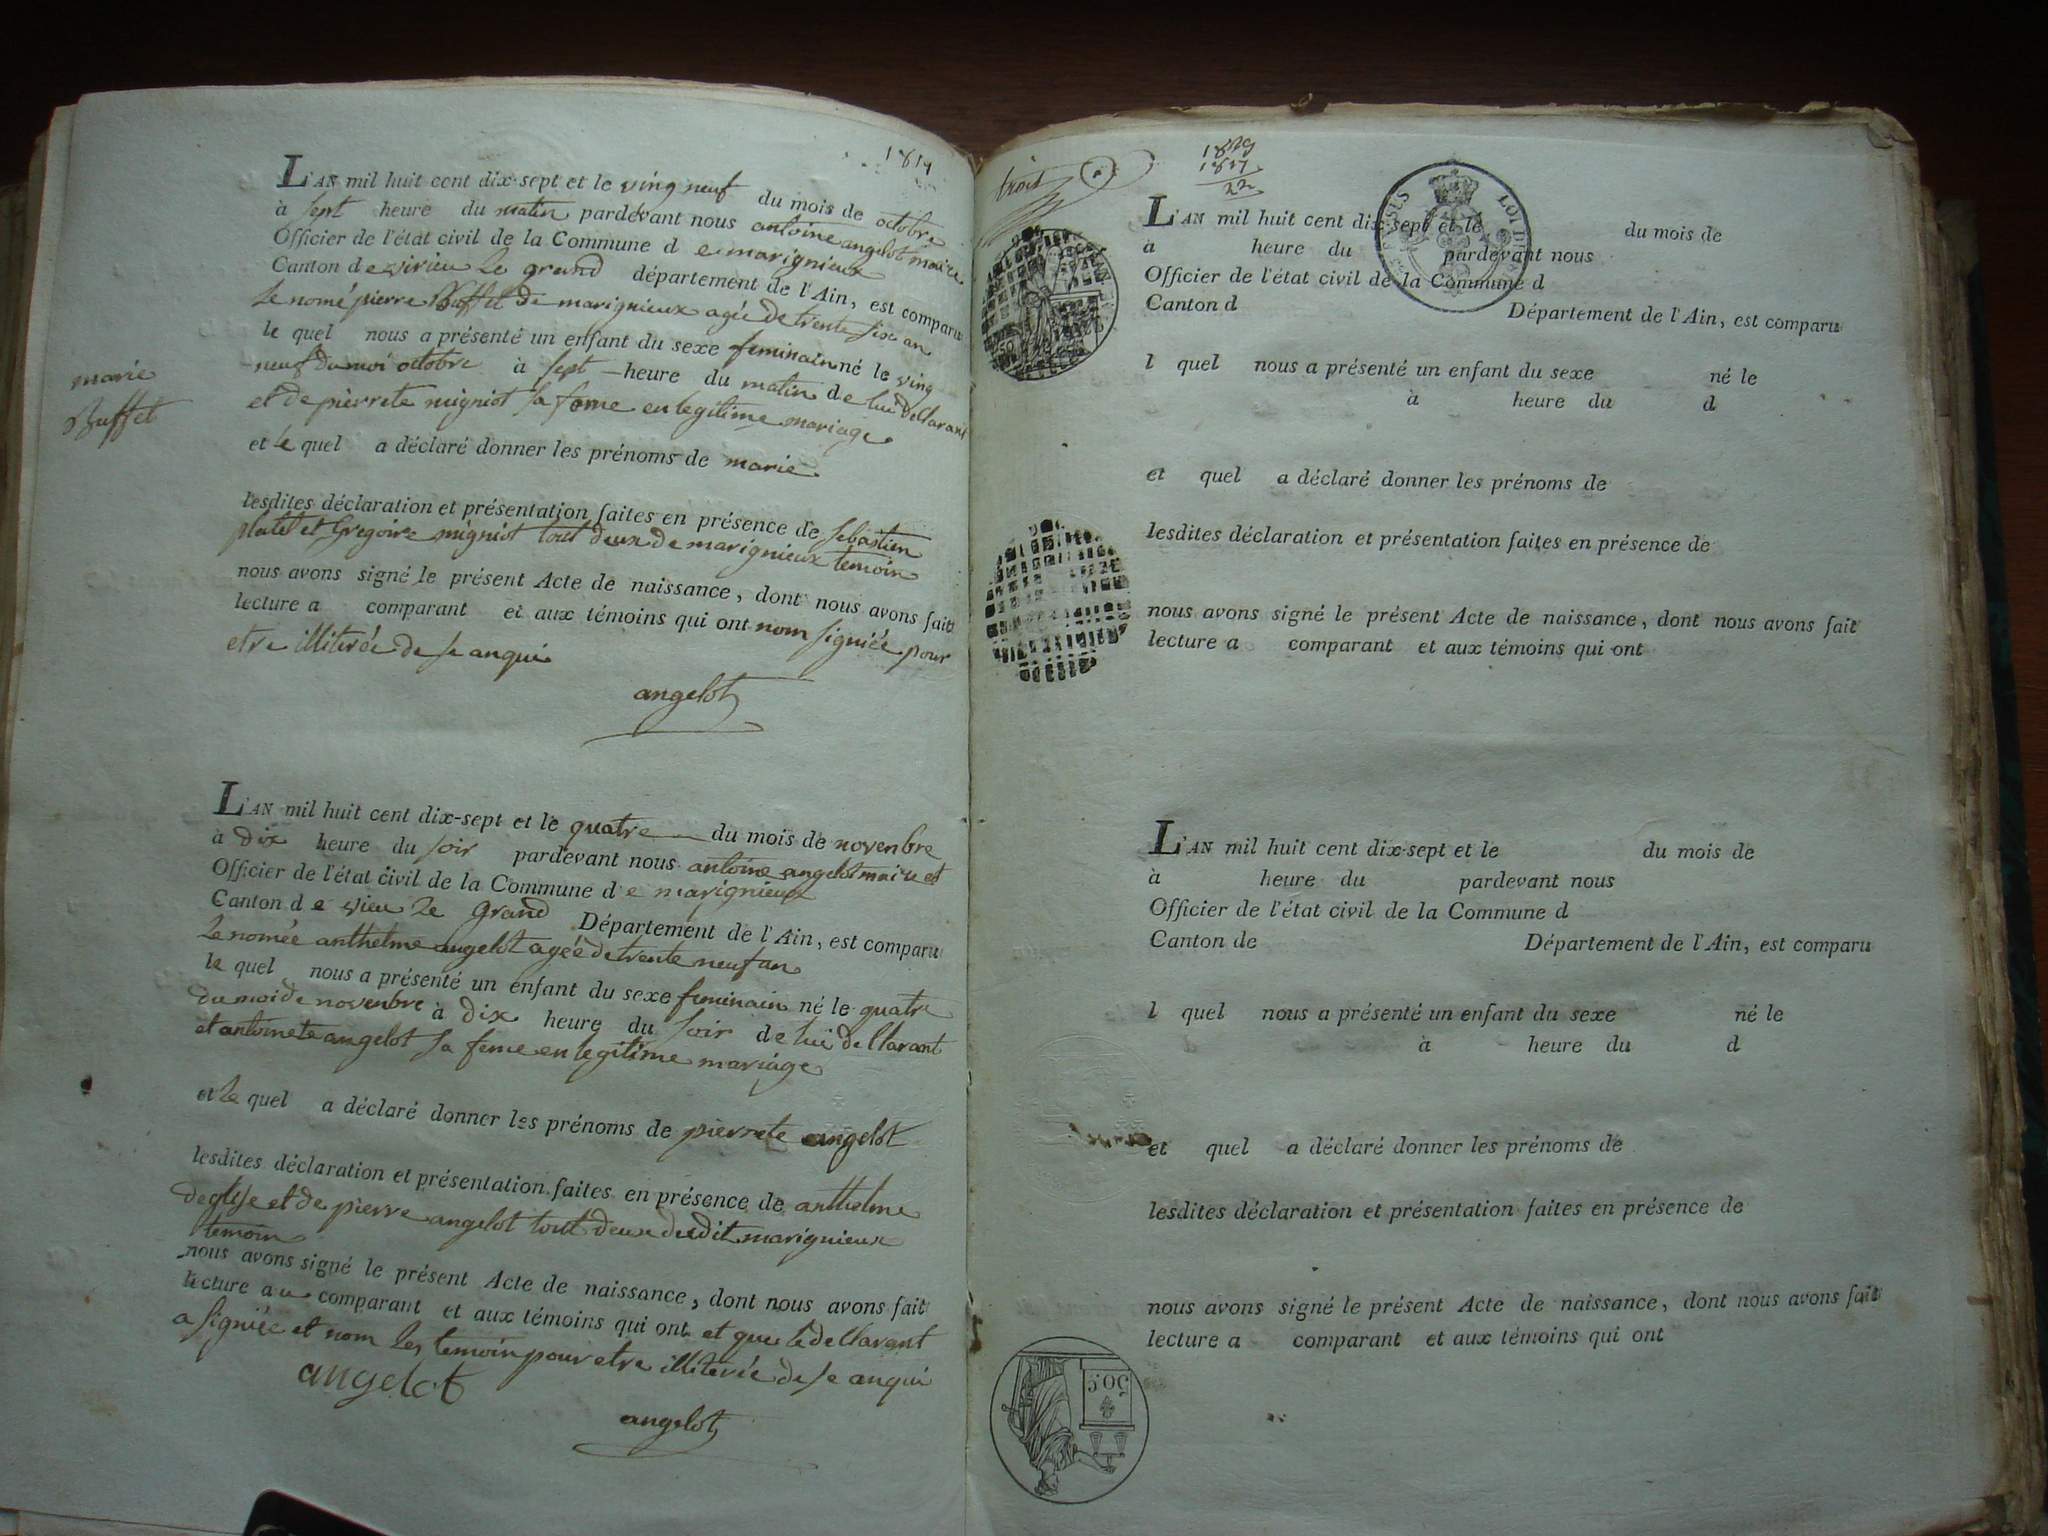 1817
L'AN mil huit cent dix-sept et le ving neuf du mois de octobre
à sept heure du matin pardevant nous antoine angelot maire
Officier de l'état civil de la Commune d e marignieux
Canton de virieu le grand département de l'Ain, est comparu
le nomé pierre Buffet de marignieux agée de trente six an
le quel nous a présenté un enfant du sexe feminain né le ving
neuf du moi octobre à sept heure du matin de lui dellarant
et de pierrete migniot sa feme en legitime mariage
et le quel a déclaré donner les prénoms de marie
marie
Buffet
lesdites déclaration et présentation faites en présence de sebastien
platel et Gregoire migniot tout deux de marignieux temoin
nous avons signé le présent Acte de naissance, dont nous avons fait
lecture a comparant et aux témoins qui ont nom signiée pour
etre illiterée de se anqui
angelot
L'AN mil huit cent dix-sept et le quatre du mois de novenbre
à dix heure du soir pardevant nous antoine angelot maire et
Officier de l'état civil de la Commune d e marignieux
Canton d e vieu le grand Département de l'Ain, est comparu
le nomée anthelme angelot agée de trente neuf an
le quel nous a présenté un enfant du sexe feminain né le quatre
du moi de novenbre à dix heure du soir de lui dellarant
et antoinete angelot sa feme en legitime mariage
et le quel a déclaré donner les prénoms de pierrete angelot
lesdites déclaration et présentation faites en présence de anthelme
deglise et de pierre angelot tout deux dudit marignieux
temoin
nous avons signé le présent Acte de naissance, dont nous avons fait
lecture au comparant et aux témoins qui ont et que le dellarant
a signiée et nom les temoin pour etre illiterée de se anqui
angelot
angelot
trois
1839
1817
22
L'AN mil huit cent dix-sept et le du mois de
à heure du pardevant nous
Officier de l'état civil de la Commune d
Canton d Département de l'Ain, est comparu
l quel nous a présenté un enfant du sexe né le
à heure du d
et quel a déclaré donner les prénoms de
lesdites déclaration et présentation faites en présence de
nous avons signé le présent Acte de naissance, dont nous avons fait
lecture a comparant et aux témoins qui ont
L'AN mil huit cent dix-sept et le du mois de
à heure du pardevant nous
Officier de l'état civil de la Commune d
Canton de Département de l'Ain, est comparu
l quel nous a présenté un enfant du sexe né le
à heure du d
et quel a déclaré donner les prénoms de
lesdites déclaration et présentation faites en présence de
nous avons signé le présent Acte de naissance, dont nous avons fait
lecture a comparant et aux témoins qui ont
50 c.